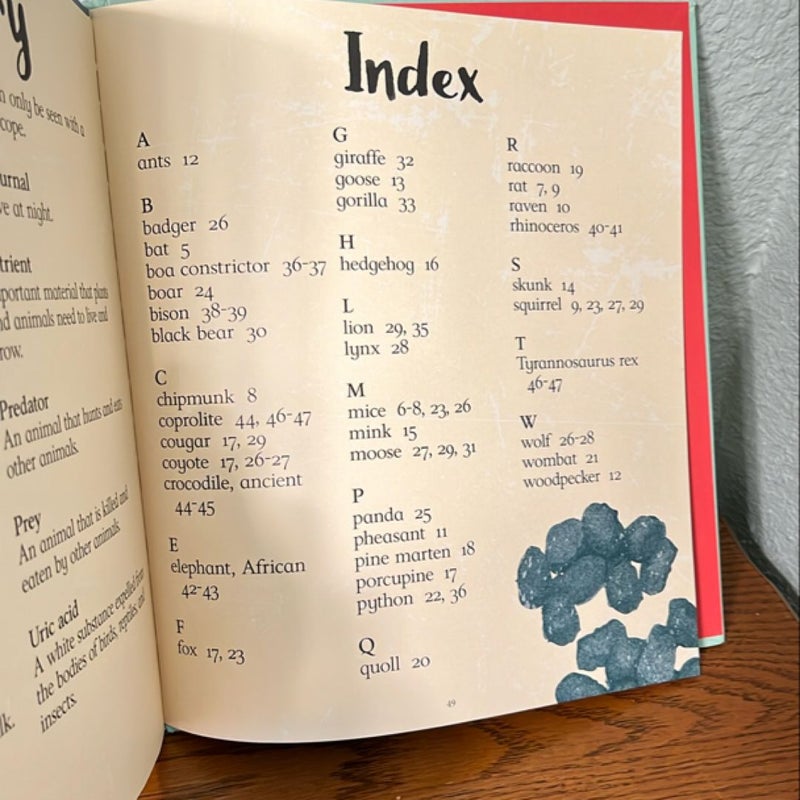 y
n only be seen with a
cope.
urnal
ve at night.
trient
portant material that plants
nd animals need to live and
row.
Predator
An animal that hunts and eats
other animals.
Prey
An animal that is killed and
eaten by other animals.
Uric acid
A white substance expelled from
the bodies of birds, reptiles, and
insects.
lk.
Index
A
ants 12
B
badger 26
bat 5
boa constrictor 36-37
boar 24
bison 38-39
black bear 30
C
chipmunk 8
coprolite 44, 46-47
cougar 17, 29
coyote 17, 26-27
crocodile, ancient
44-45
E
elephant, African
42-43
F
fox 17, 23
G
giraffe 32
goose 13
gorilla 33
H
hedgehog 16
L
lion 29, 35
lynx 28
M
mice 6-8, 23, 26
mink 15
moose 27, 29, 31
P
panda 25
pheasant 11
pine marten 18
porcupine 17
python 22, 36
Q
quoll 20
R
raccoon 19
rat 7, 9
raven 10
rhinoceros 40-41
S
skunk 14
squirrel 9, 23, 27, 29
T
Tyrannosaurus rex
46-47
W
wolf 26-28
wombat 21
woodpecker 12
49